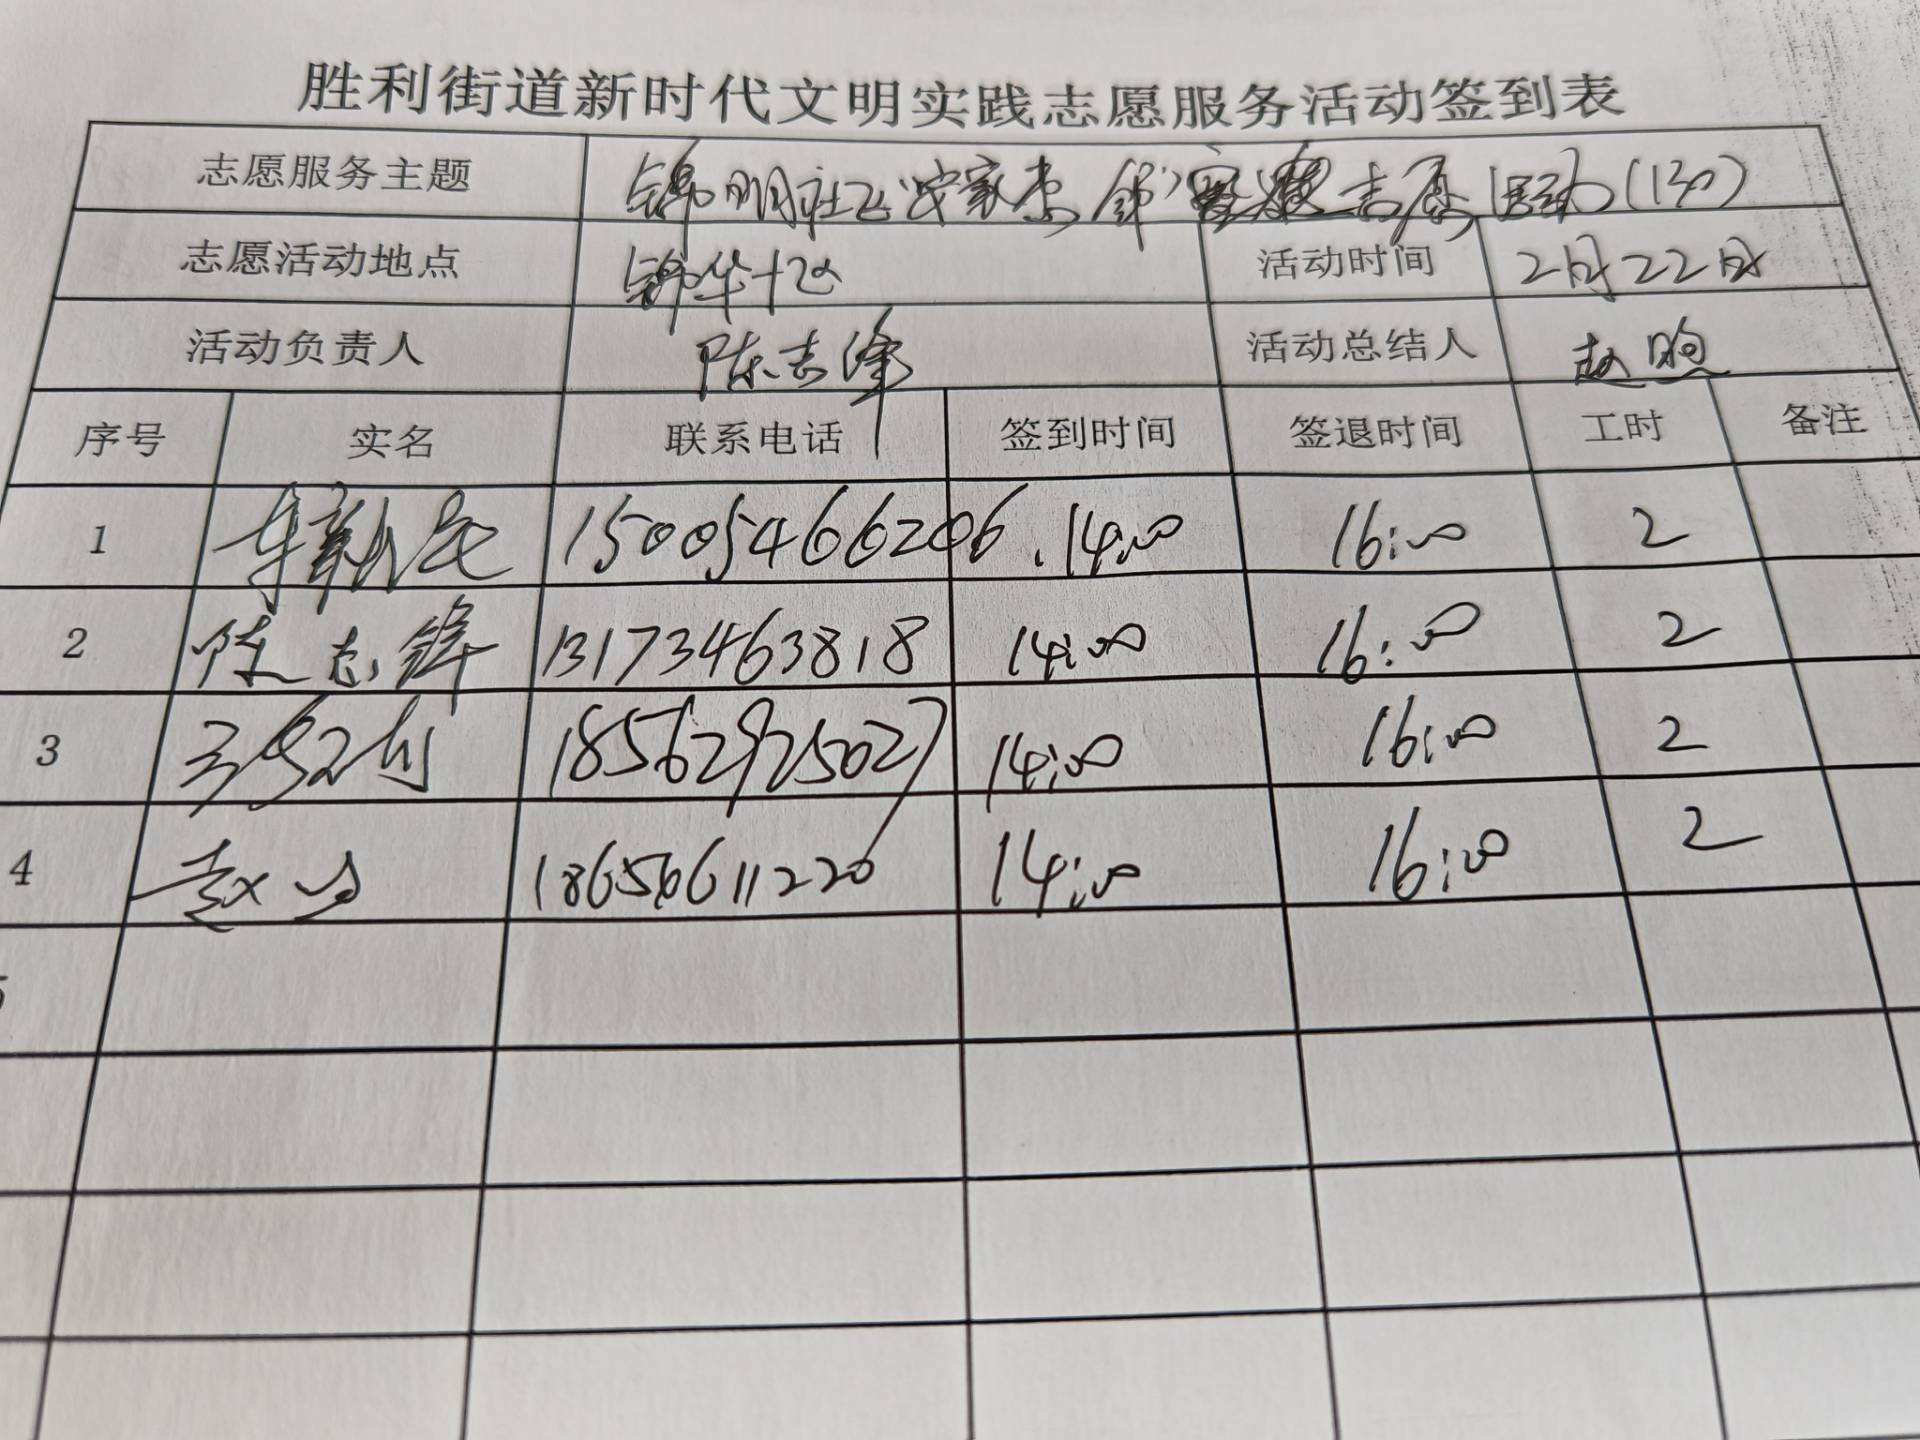 胜利街道新时代文明实践志愿服务活动签到表
志愿服务主题 锦明社区 志愿活动(130)
志愿活动地点 锦华十区 活动时间 2月22日
活动负责人 陈志锋 活动总结人 赵
序号 实名 联系电话 签到时间 签退时间 工时 备注
1 15005466206. 14:00 16:00 2
2 陈志锋 13173463818 14:00 16:00 2
3 18562925027 14:00 16:00 2
4 赵 18656611220 14:00 16:00 2
5